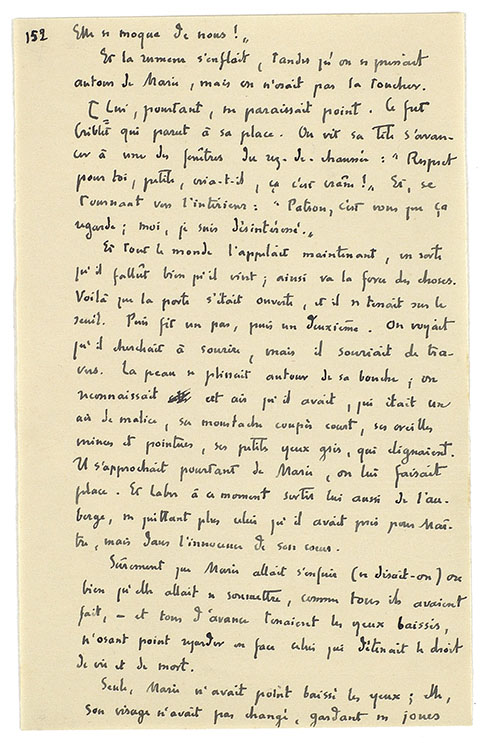 152 Elle se moque de nous ! „
Et la rumeur s'enflait, tandis qu'on se pressait
autour de Marie, mais on n'osait pas la toucher.
[ Lui, pourtant, ne paraissait point. Ce fut
Criblet qui parut à sa place. On vit sa tête s'avan-
cer à une des fenêtres du rez-de-chaussée : " Respect
pour toi, petite, cria-t-il, ça c'est crâne ! „ Et, se
tournant vers l'intérieur : " Patron, c'est vous que ça
regarde ; moi, je suis désintéressé. „
Et tout le monde l'appelait maintenant, en sorte
qu'il fallût bien qu'il vînt ; ainsi va la force des choses.
Voilà que la porte s'était ouverte, et il se tenait sur le
seuil. Puis fit un pas, puis un deuxième. On voyait
qu'il cherchait à sourire, mais il souriait de tra-
vers. La peau se plissait autour de sa bouche ; on
reconnaissait cet air qu'il avait, qui était un
air de malice, sa moustache coupée court, ses oreilles
minces et pointues, ses petits yeux gris, qui clignaient.
Il s'approchait pourtant de Marie, on lui faisait
place. Et Labre à ce moment sortit lui aussi de l'au-
berge, ne quittant plus celui qu'il avait pris pour Maî-
tre, mais dans l'innocence de son cœur.
Sûrement que Marie allait s'enfuir (se disait-on) ou
bien qu'elle allait se soumettre, comme tous ils avaient
fait, – et tous d'avance tenaient les yeux baissés,
n'osant point regarder en face celui qui détenait le droit
de vie et de mort.
Seule, Marie n'avait point baissé les yeux ; elle,
son visage n'avait pas changé, gardant ses joues